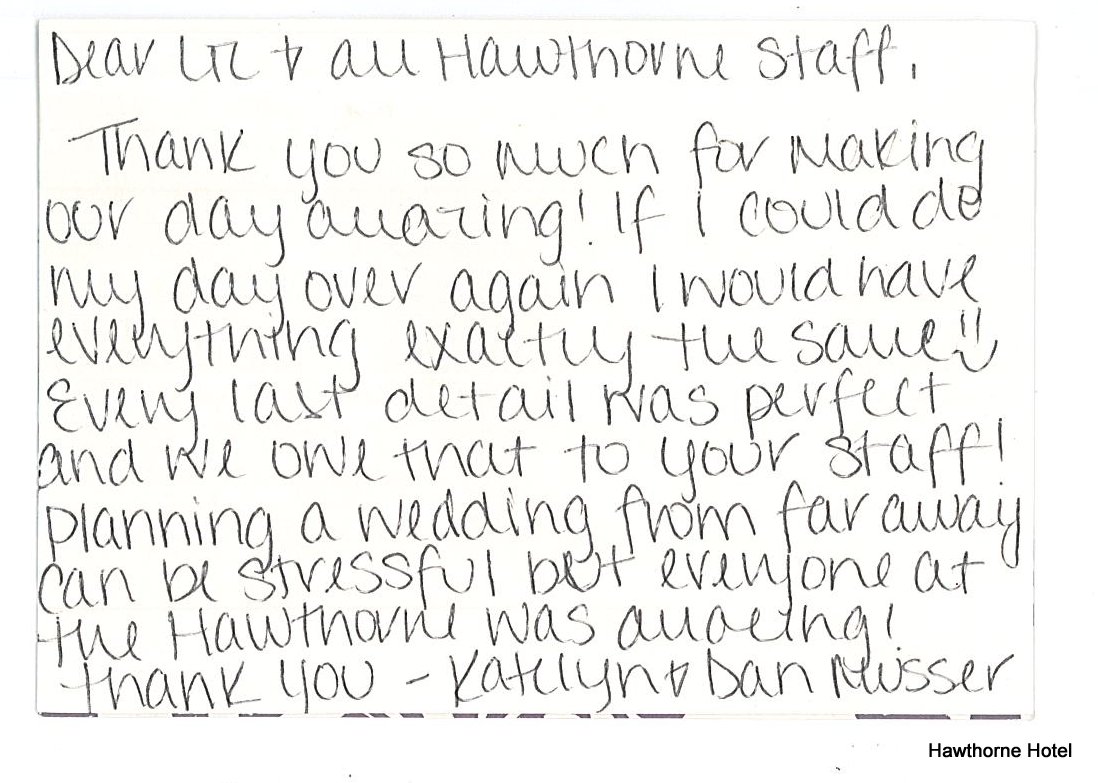 Dear Liz + all Hawthorne Staff,
Thank you so much for making
our day amazing! If I could do
my day over again I would have
everything exactly the same!
Every last detail was perfect
and we owe that to your staff!
planning a wedding from far away
can be stressful but everyone at
the Hawthorne was amazing!
Thank you - Katelyn + Dan Musser
Hawthorne Hotel